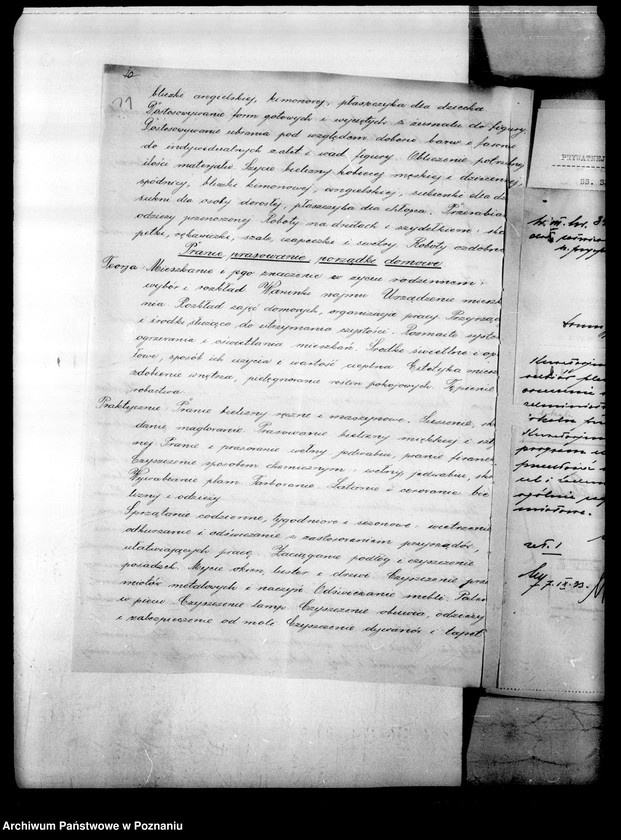 10
21
bluzki angielskiej, kimonowej, płaszczyka dla dziecka.
Dostosowywanie form gotowych i wyciętych z żurnalu do figury.
Dostosowywanie ubrania pod względem doboru barw i fasonu
do indywidualnych zalet i wad figury. Obliczenie potrzebnej
ilości materjału. Szycie bielizny kobiecej męskiej i dziecinnej,
spódnicy, bluzki kimonowej, angielskiej, sukienki dla dz
sukni dla osoby dorosłej, płaszczyka dla chłopca. Przerabia
odzieży przenoszonej. Roboty na drutach i szydełkiem: ska
petki, rękawiczki, szale, czapeczki i swetry. Roboty ozdobne
Pranie, prasowanie, porządki domowe
Teorja Mieszkanie i jego znaczenie w życiu rodzinnem;
wybór i rozkład. Warunki najmu. Urządzenie mieszk
nia. Rozkład zajęć domowych, organizacja pracy. Przyrząd
i środki służące do utrzymania czystości. Rozmaite syste
ogrzewania i oświetlania mieszkań. Środki świetlne i op
łowe, sposób ich użycia i wartość cieplna. Estetyka miesz
zdobienie wnętrza, pielęgnowanie roślin pokojowych. Tępienie
robactwa.
Praktycznie: Pranie bielizny ręczne i maszynowe. Suszenie, skł
danie, maglowanie. Prasowanie bielizny miękkiej i szt
nej. Pranie i prasowanie wełny, jedwabiu, pranie firanek
Czyszczenie sposobem chemicznym: wełny, jedwabiu, skó
Wywabianie plam. Farbowanie. Łatanie i cerowanie bie
lizny i odzieży.
Sprzątanie codzienne, tygodniowe i sezonowe: wietrzenie
odkurzanie i odświeżanie z zastosowaniem przyrządów,
ułatwiających pracę. Zaciąganie podłóg i czyszczenie
posadzek. Mycie okien, luster i drzwi. Czyszczenie prze
miotów metalowych i naczyń. Odświeżanie mebli. Palen
w piecu. Czyszczenie lamp. Czyszczenie obuwia, odzieży
i zabezpieczenie od moli. Czyszczenie dywanów i tapet
PRYWATNEJ
SS.
zał. 1
7.IX.33.
Archiwum Państwowe w Poznaniu